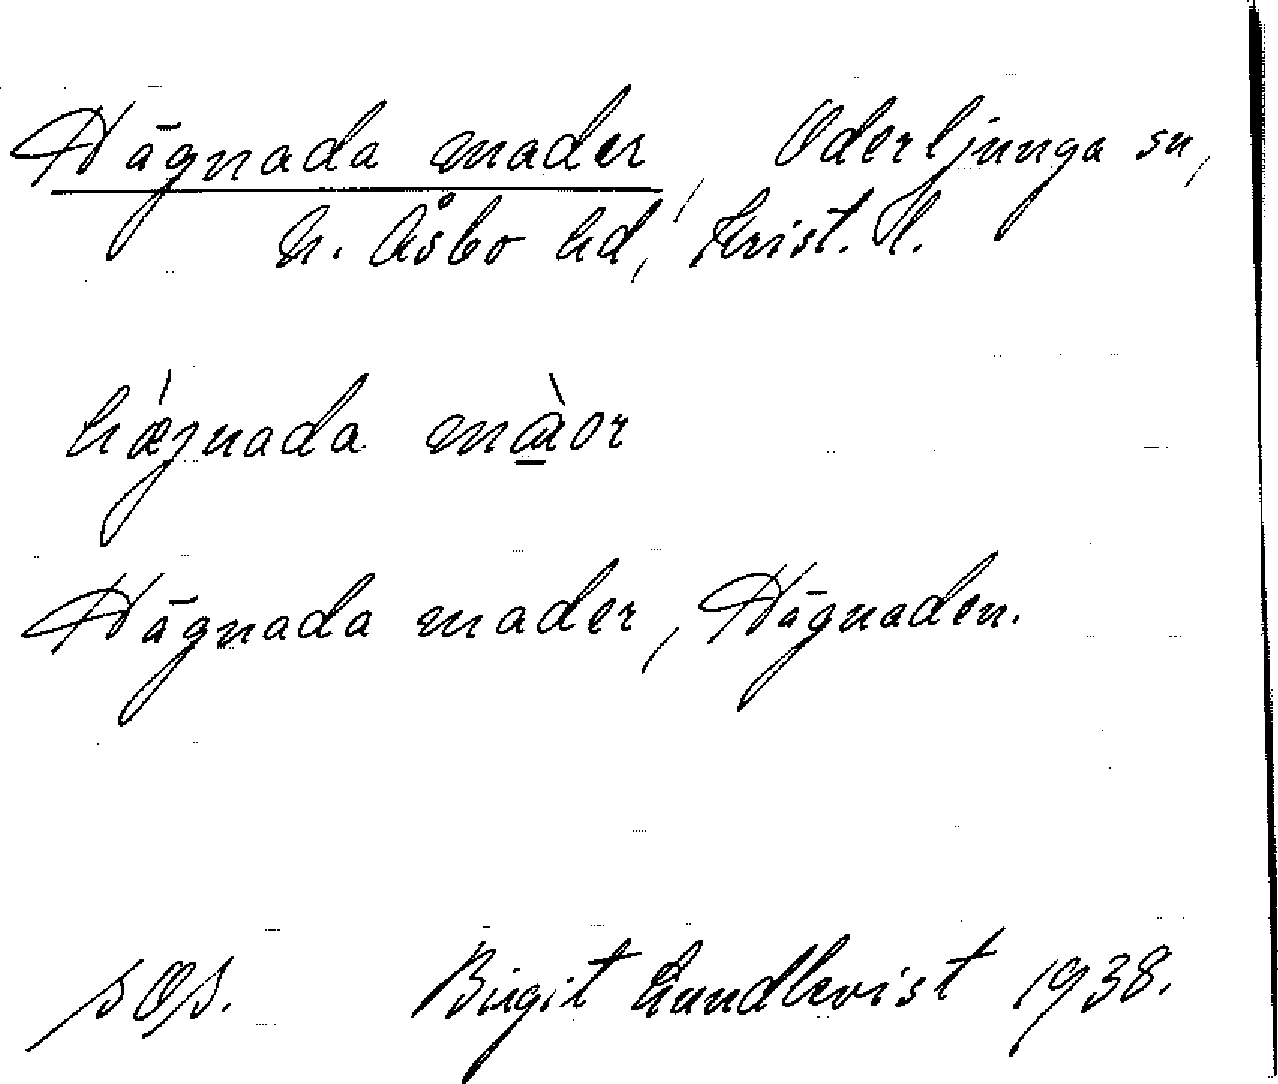 Hägnada mader, Oderljunga sn,
N. Åsbo hd, Krist. l.
hǽgnada màor
Hägnada mader, Hägnaden.
s. 08.
Birgit Lundkvist 1938.